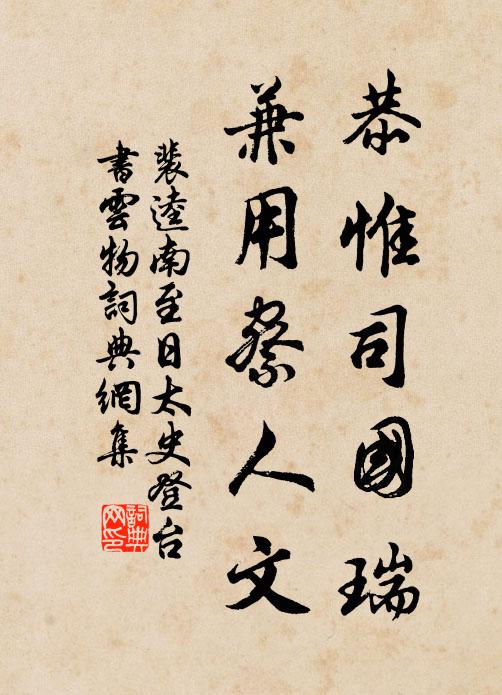 恭惟司國瑞
兼用察人文
裴逵南至日太史登台
書雲物詞典網集
詞典
网印